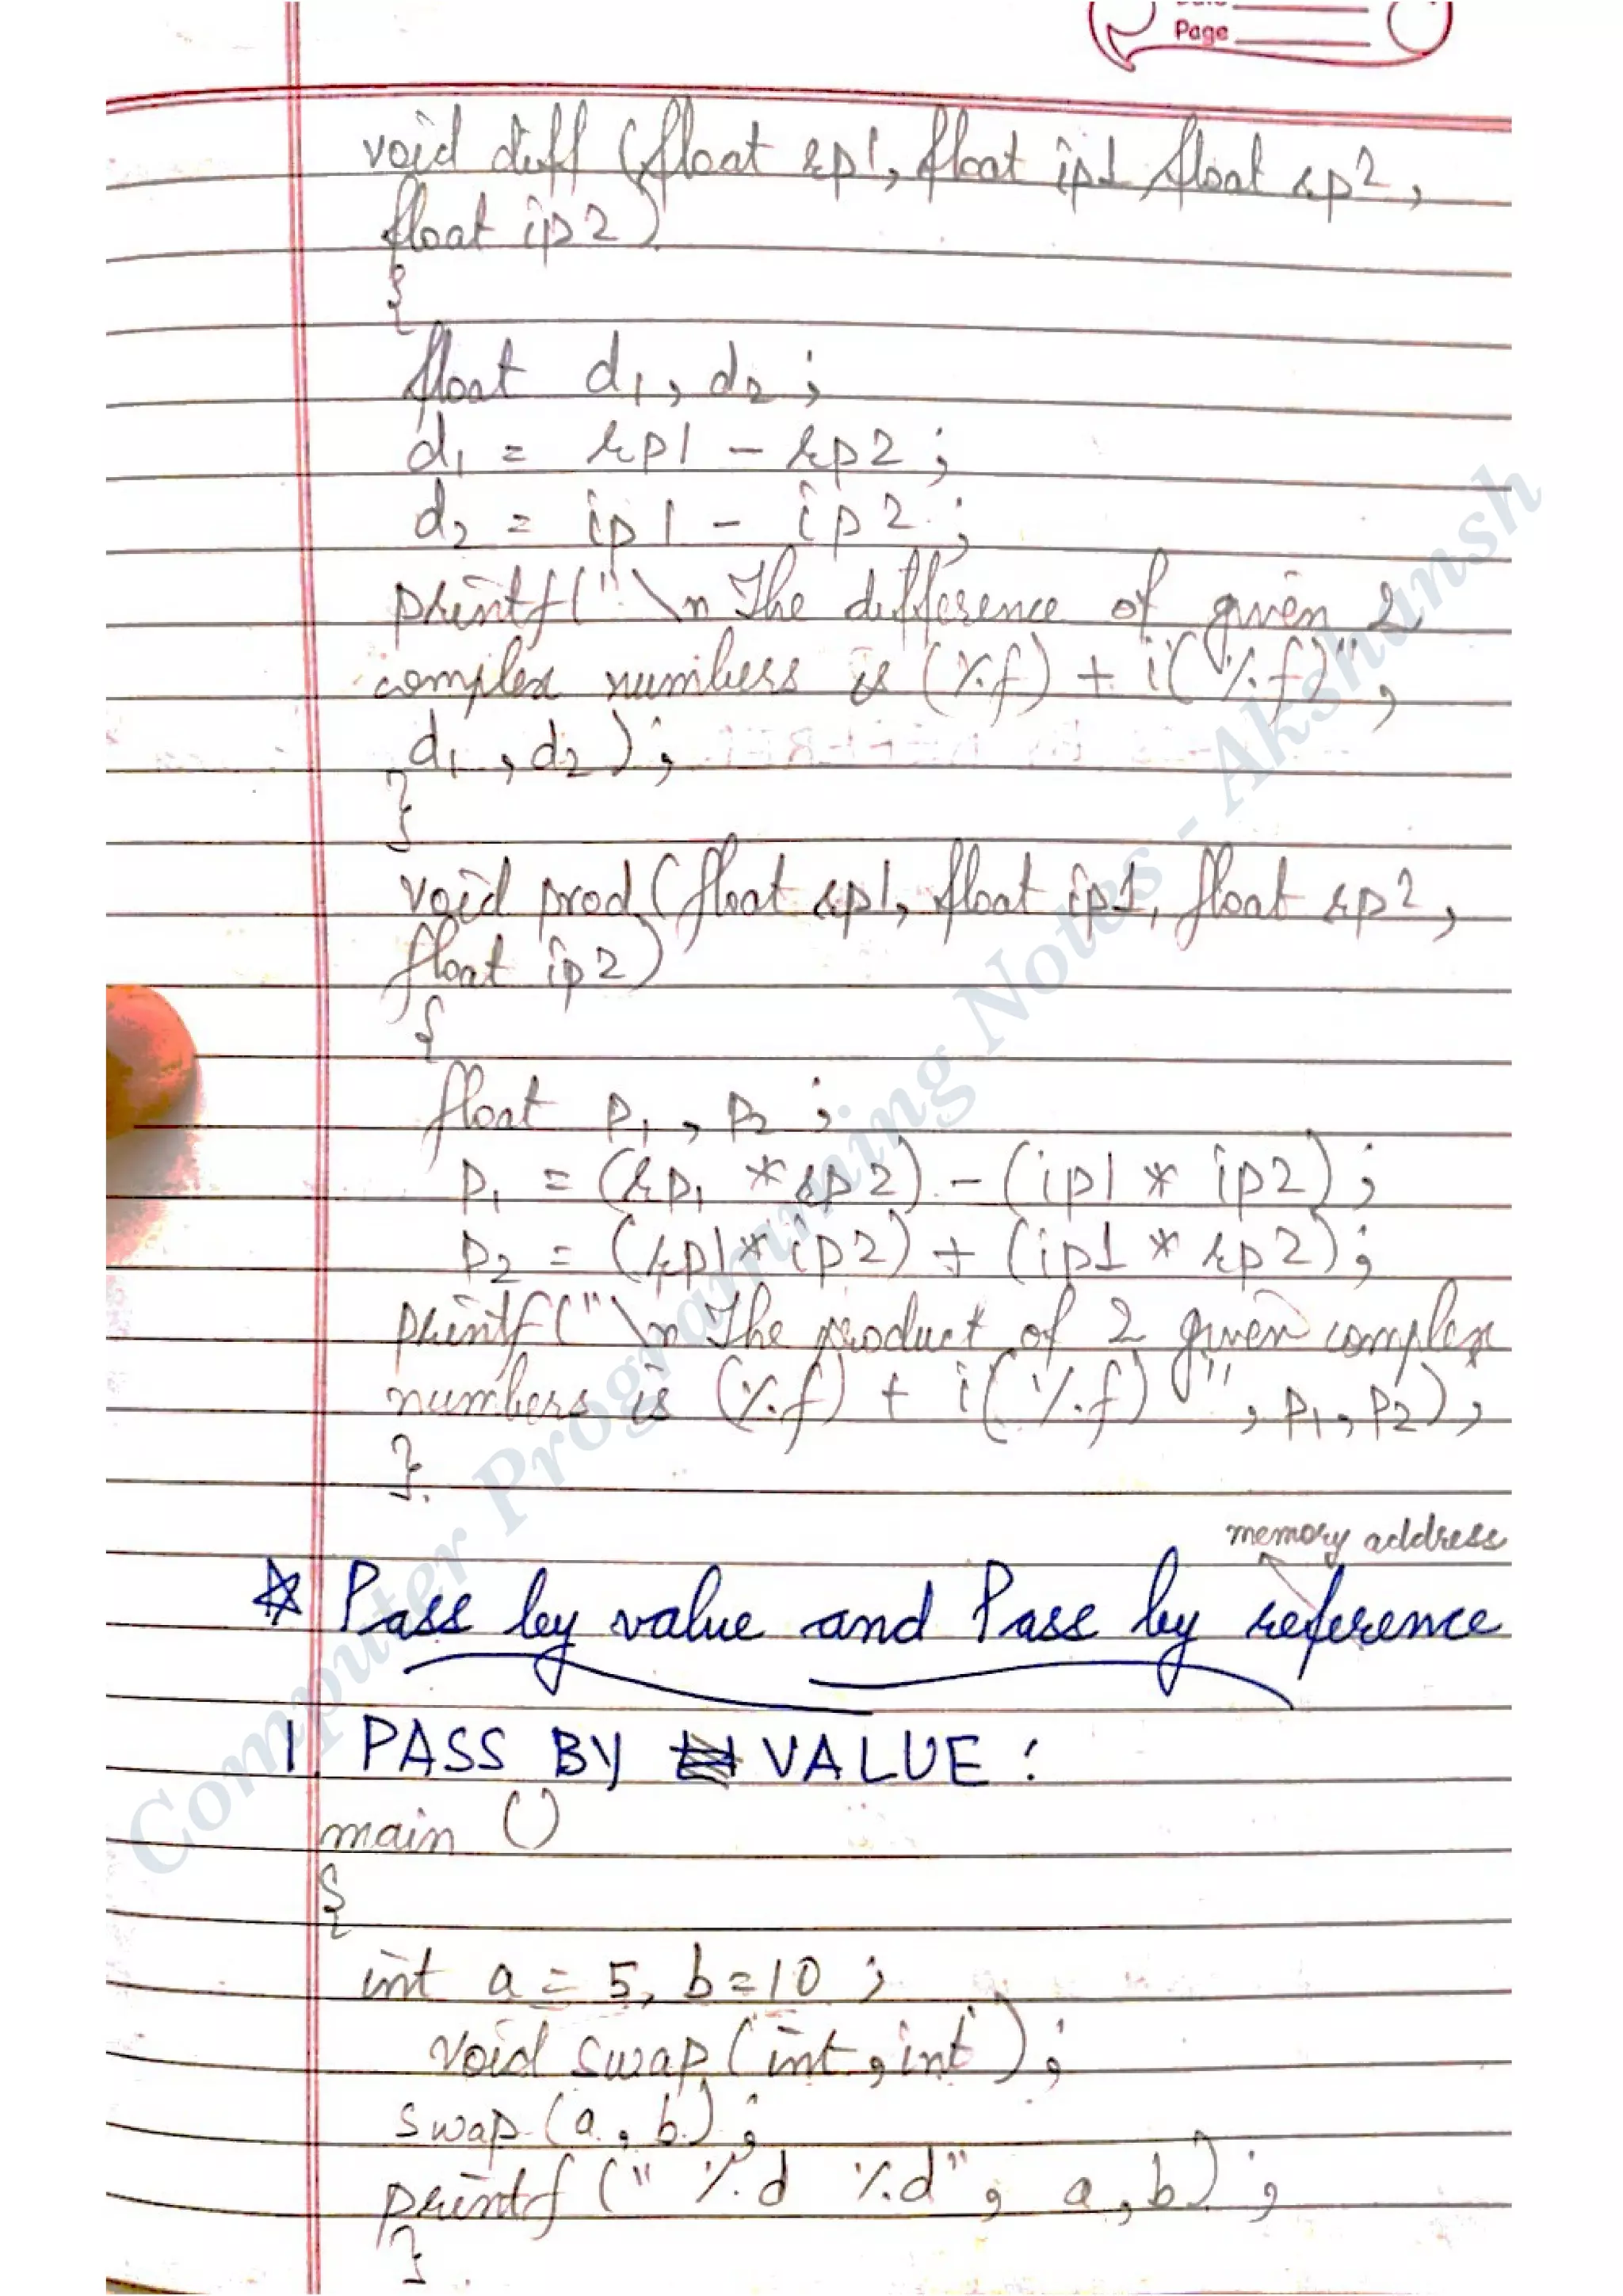 Page
void diff (float rp1, float ip1, float rp2,
float ip2)
{
float d1, d2 ;
d1 = rp1 - rp2 ;
d2 = ip1 - ip2 ;
printf("\n The difference of given 2
complex numbers is (%f) + i(%f)",
d1, d2 ) ;
}
void prod (float rp1, float ip1, float rp2,
float ip2)
{
float p1, p2 ;
p1 = (rp1 * rp2) - (ip1 * ip2) ;
p2 = (rp1 * ip2) + (ip1 * rp2) ;
printf("\n The product of 2 given complex
numbers is (%f) + i(%f) ", p1, p2) ;
}.
memory address
☆ Pass by value and Pass by reference
1. PASS BY VALUE :
main ()
{
int a = 5, b = 10 ;
void swap (int, int) ;
swap (a, b) ;
printf (" %d %d", a, b) ;
}
Computer Programming Notes - Akshansh